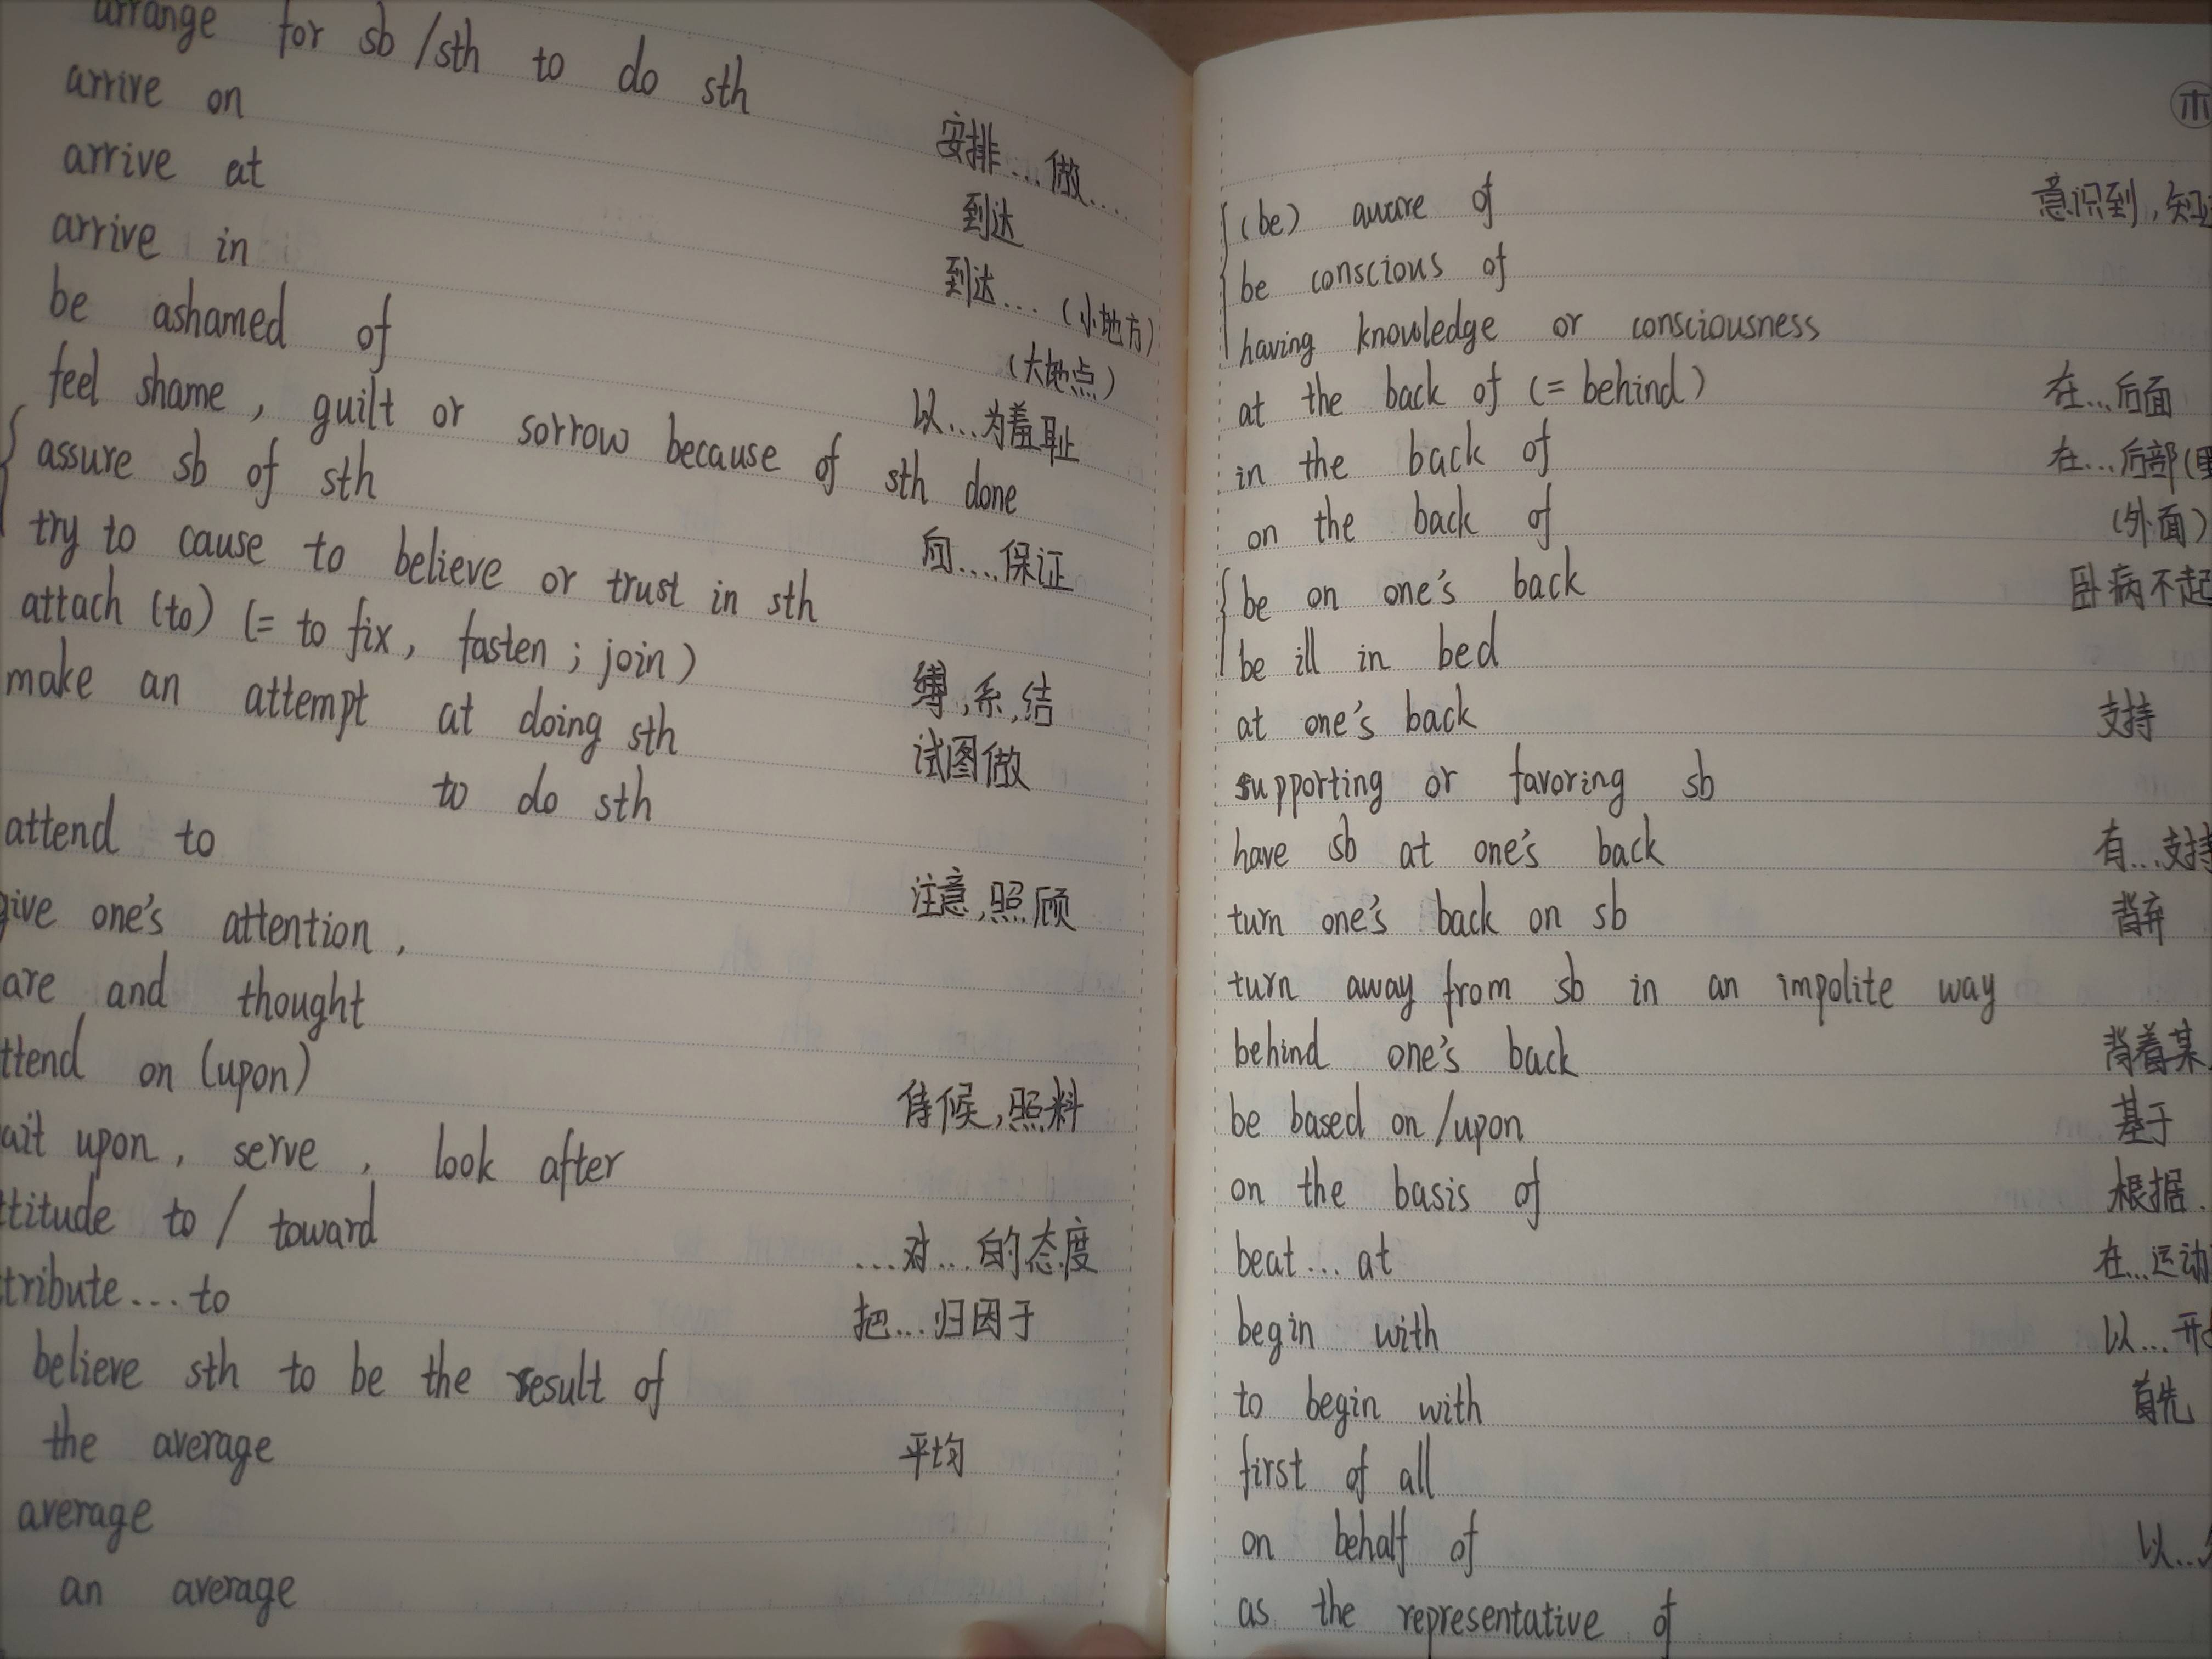 arrange for sb /sth to do sth 安排...做....
arrive on 到达
arrive at 到达... (小地方)
arrive in (大地点)
be ashamed of 以...为羞耻
feel shame, guilt or sorrow because of sth done
assure sb of sth 向....保证
try to cause to believe or trust in sth
attach (to) (= to fix, fasten ; join) 缚,系,结
make an attempt at doing sth 试图做
to do sth
attend to 注意,照顾
give one's attention,
are and thought
ttend on (upon) 侍候,照料
ait upon, serve, look after
ttitude to / toward ....对...的态度
tribute...to 把...归因于
believe sth to be the result of
the average 平均
average
an average
木
(be) aware of 意识到,知道
be conscious of
having knowledge or consciousness
at the back of (= behind) 在...后面
in the back of 在...后部(里
on the back of (外面)
be on one's back 卧病不起
be ill in bed
at one's back 支持
supporting or favoring sb
have sb at one's back 有...支持
turn one's back on sb 背弃
turn away from sb in an impolite way
behind one's back 背着某
be based on /upon 基于
on the basis of 根据.
beat... at 在...运动
begin with 以...开
to begin with 首先
first of all
on behalf of 以...
as the representative of